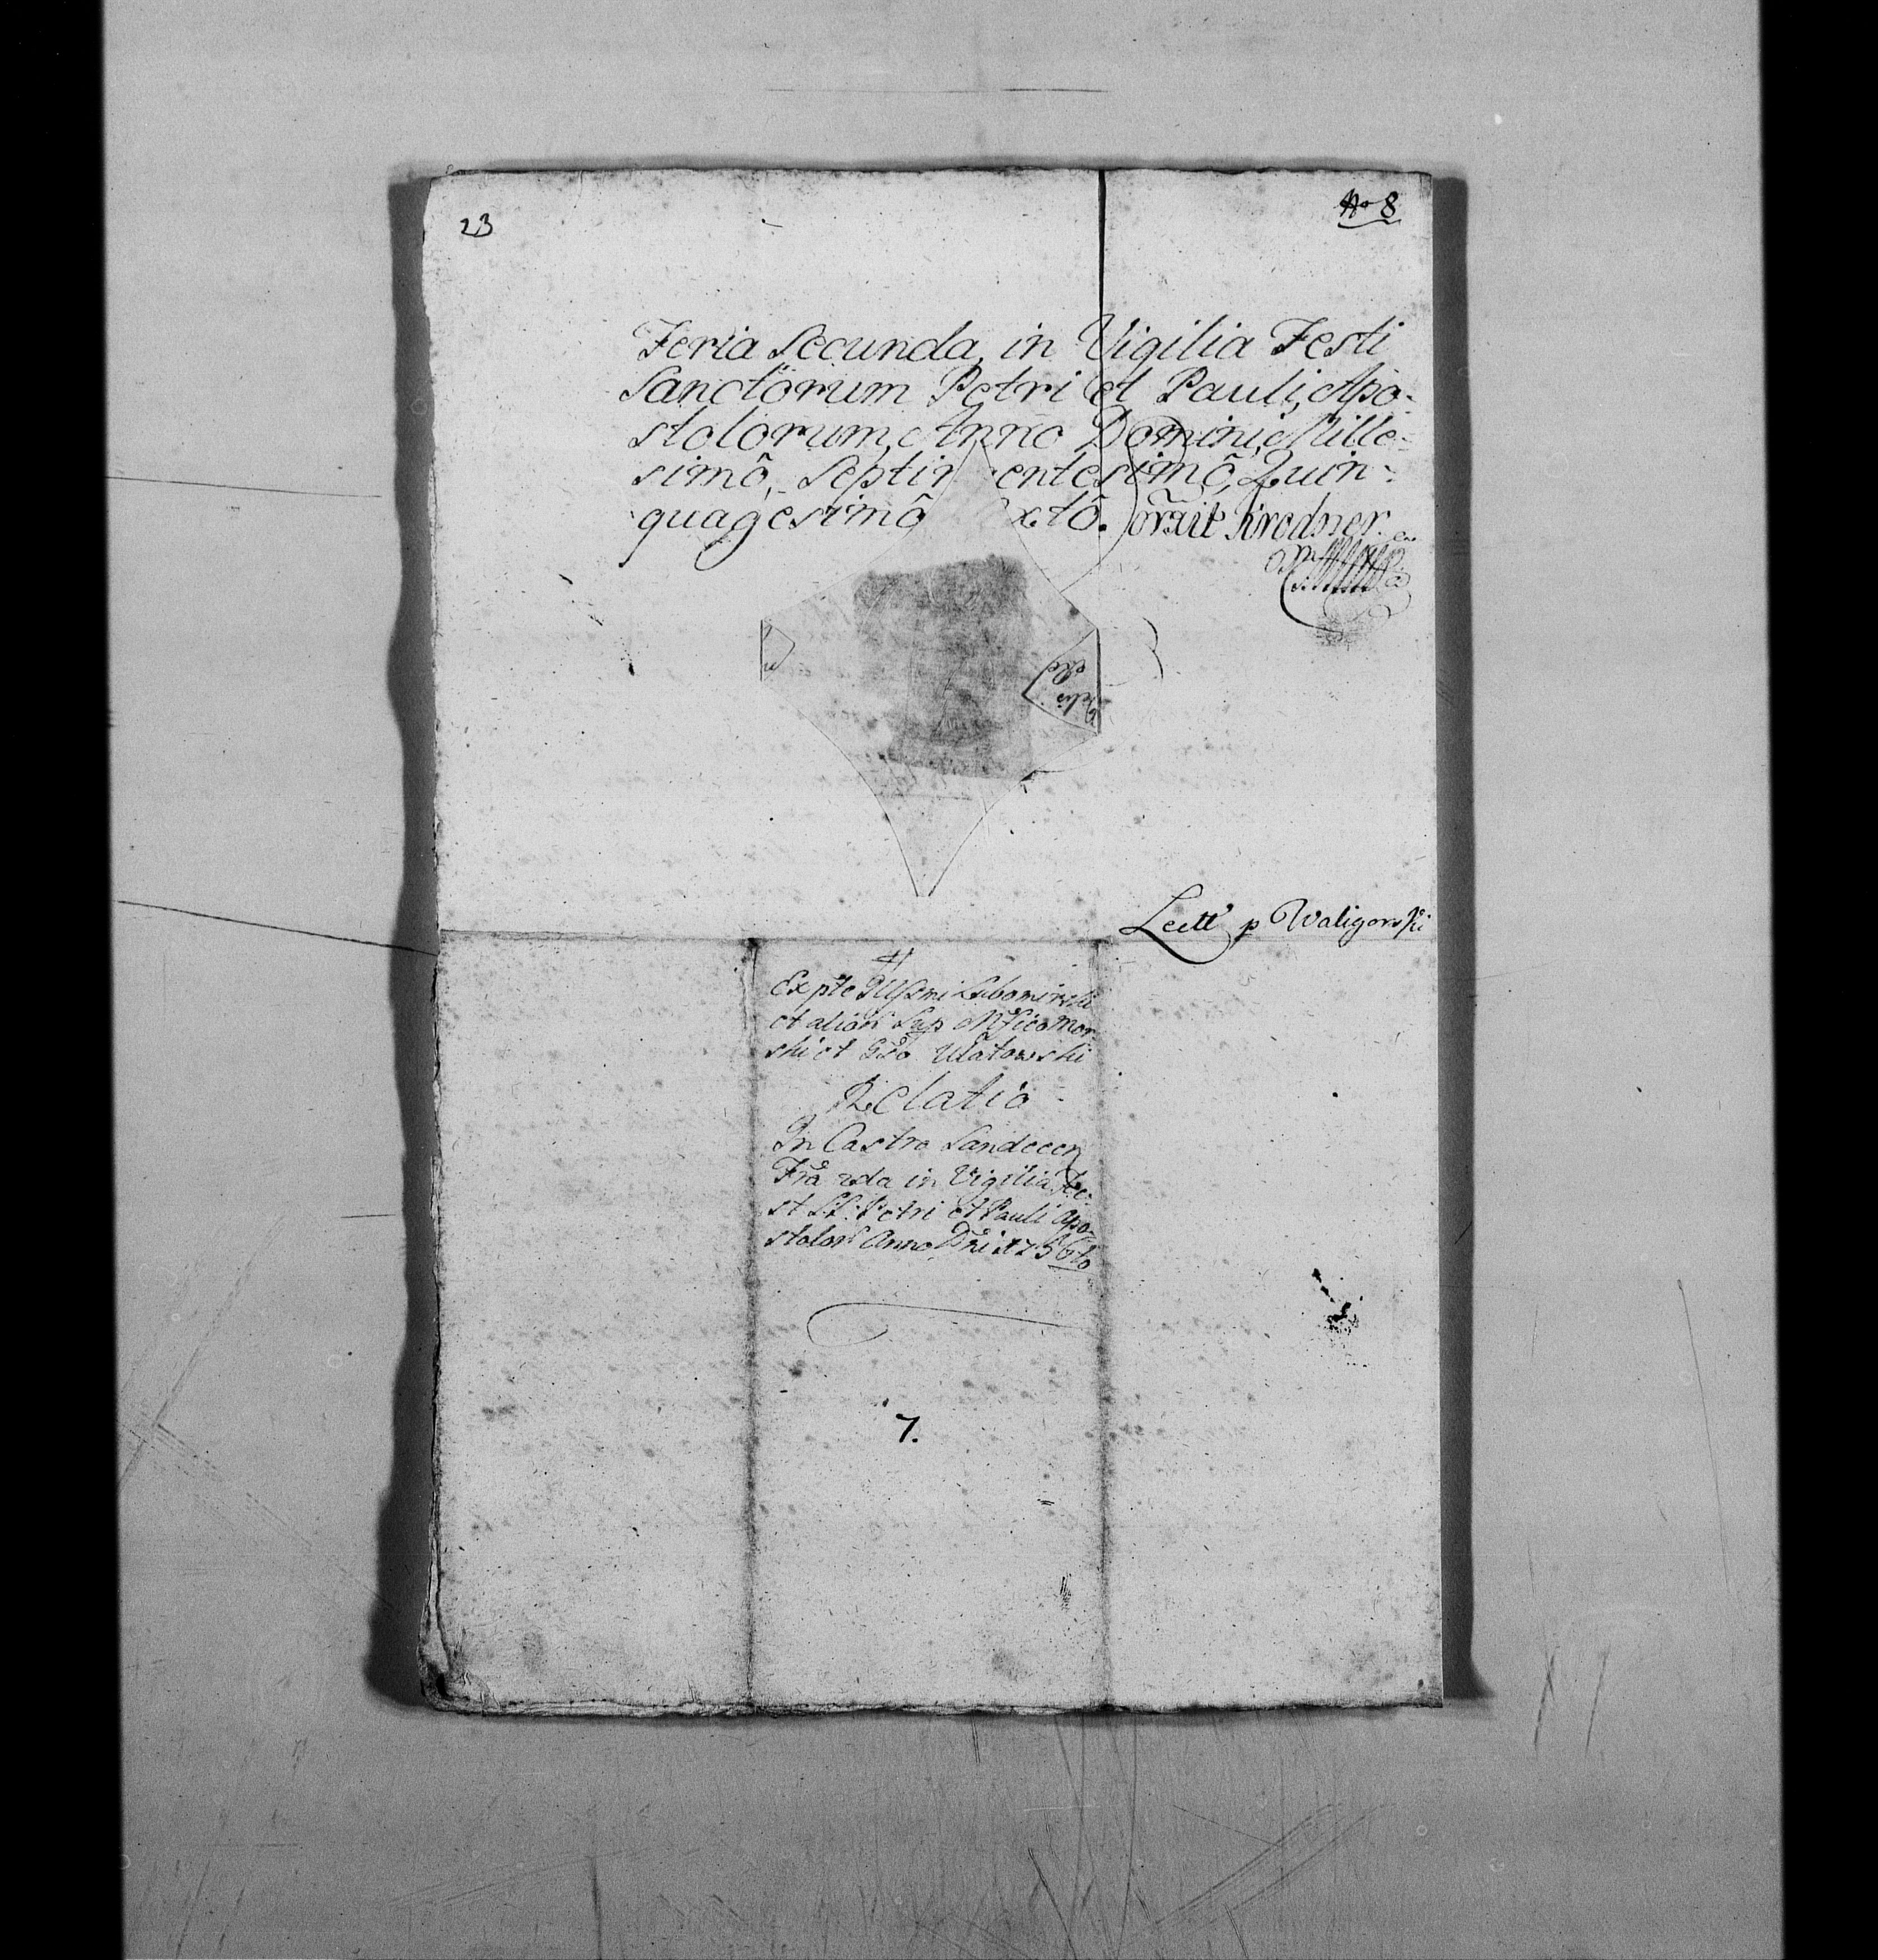 23
No 8
Feria Secunda, in Vigilia Festi
Sanctorum Petri et Pauli, Apo-
stolorum, Anno Domini, Mille-
simô, Septin entesimô, Quin-
quagesimô xtô.
Lectt p Waligorski
Ex pte Lubomirski
et alior
ski et Gso Ulatowski
Relatio
In Castro Sandecen
Fria 2da in Vigilia Fe-
st SS: Petri et Pauli Apo-
stolor Anno Dni 1756to
7.